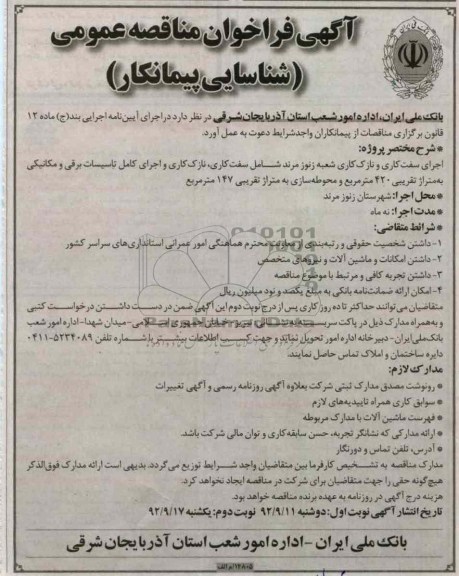 آگهی فراخوان مناقصه عمومی
(شناسایی پیمانکار)
بانک ملی ایران، اداره امور شعب استان آذربایجان شرقی در نظر دارد در اجرای آیین‌نامه اجرایی بند(ج) ماده ۱۲
قانون برگزاری مناقصات از پیمانکاران واجدشرایط دعوت به عمل آورد.
* شرح مختصر پروژه:
اجرای سفت‌کاری و نازک‌کاری شعبه زنوز مرند شـامل سفت‌کاری، نازک‌کاری و اجرای کامل تاسیسات برقی و مکانیکی
به‌متراژ تقریبی ۴۲۰ مترمربع و محوطه‌سازی به متراژ تقریبی ۱۴۷ مترمربع
* محل اجرا: شهرستان زنوز مرند
* مدت اجرا: نه ماه
* شرائط متقاضی:
۱- داشتن شخصیت حقوقی و رتبه‌بندی از معاونت محترم هماهنگی امور عمرانی استانداری‌های سراسر کشور
۲- داشتن امکانات و ماشین آلات و نیروهای متخصص
۳- داشتن تجربه کافی و مرتبط با موضوع مناقصه
۴- امکان ارائه ضمانت‌نامه بانکی به مبلغ یکصد و نود میلیون ریال
متقاضیان می‌توانند حداکثر تا ده روز کاری پس از درج نوبت دوم این آگهی ضمن در دست داشتن درخواست کتبی
و به‌همراه مدارک ذیل در پاکت سربسته به نشانی تبریز- خیابان جمهوری اسلامی-میدان شهدا-اداره امور شعب
بانک‌ملی‌ایران- دبیرخانه اداره امور تحویل نمایند و جهت کسب اطلاعات بیشتر با شماره تلفن ۵۲۳۴۰۸۹-۰۴۱۱
دایره ساختمان و املاک تماس حاصل نمایند.
مدارک لازم:
* رونوشت مصدق مدارک ثبتی شرکت بعلاوه آگهی روزنامه رسمی و آگهی تغییرات
* سوابق کاری همراه تاییدیه‌های لازم
* فهرست ماشین آلات با مدارک مربوطه
* ارائه مدارکی که نشانگر تجربه، حسن سابقه کاری و توان مالی شرکت باشد.
* آدرس، تلفن تماس و دورنگار
مدارک مناقصه به تشـخیص کارفرما بین متقاضیان واجد شـرایط توزیع می‌گردد. بدیهی است ارائه مدارک فوق‌الذکر
هیچ‌گونه حقی را جهت متقاضیان برای شرکت در مناقصه ایجاد نخواهد کرد.
هزینه درج آگهی در روزنامه به عهده برنده مناقصه خواهد بود.
تاریخ انتشار آگهی نوبت اول: دوشنبه ۹۲/۹/۱۱ نوبت دوم: یکشنبه ۹۲/۹/۱۷
بانک ملی ایران - اداره امور شعب استان آذربایجان شرقی
۱۲۸۰۵/م الف